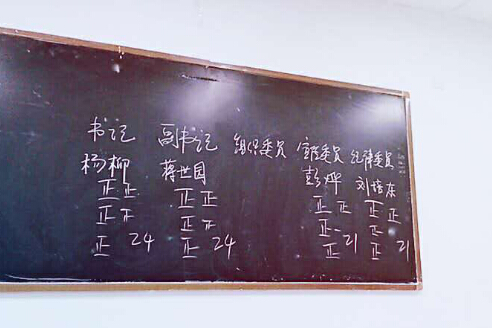 书记 副书记 组织委员 宣传委员 纪律委员
杨柳 蒋世国 彭烨 刘培东
正正 正正 正正 正正
正正 正正 正 正
正 24 正 24 正 21 正 21